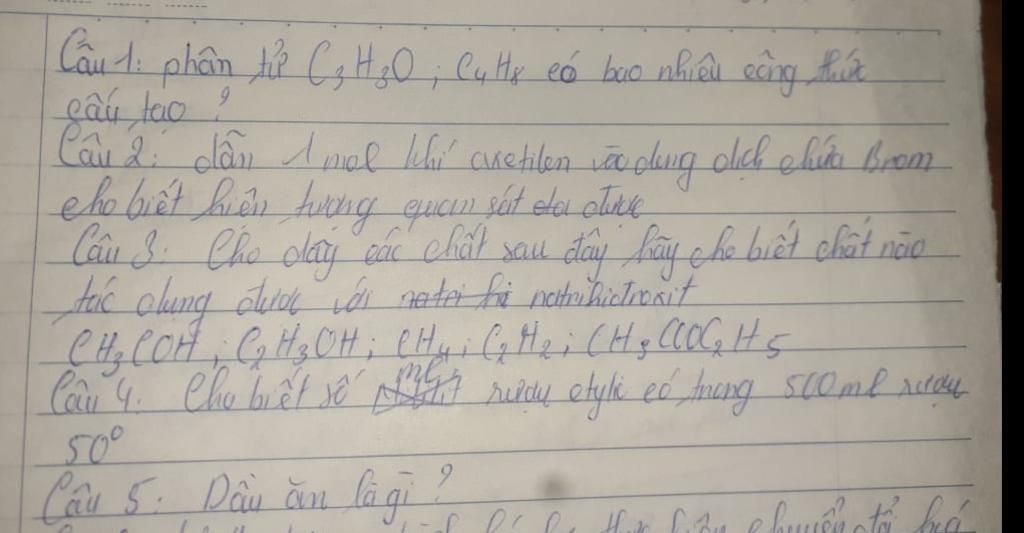 Câu 1: phân tử C₃H₃O ; C₄H₈ có bao nhiêu công thức
cấu tạo ?
Câu 2: dẫn 1 mol khí axetilen vào dung dịch chứa Brom
cho biết hiện tượng quan sát được
Câu 3: Cho dãy các chất sau đây hãy cho biết chất nào
tác dụng được với natrihiđroxit
CH₃COH ; C₂H₃OH ; CH₄ ; C₂H₂ ; CH₃COOC₂H₅
Câu 4: Cho biết số ml rượu etylic có trong 500ml rượu
50°
Câu 5: Dầu ăn là gì ?
chuyển